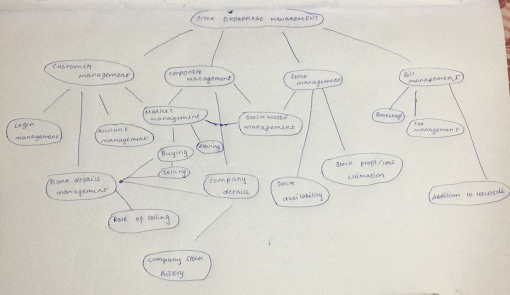 STOCK BROKERAGE MANAGEMENT
Customer
management
Corporate
management
Stock
management
Bill
management
Login
management
Account
management
Market
management
management
Brokerage
Tax
management
Buying
Selling
Bank details
management
Company
details
Stock
availability
Stock profit/loss
estimation
Addition to
Rate of selling
Company Stock
history